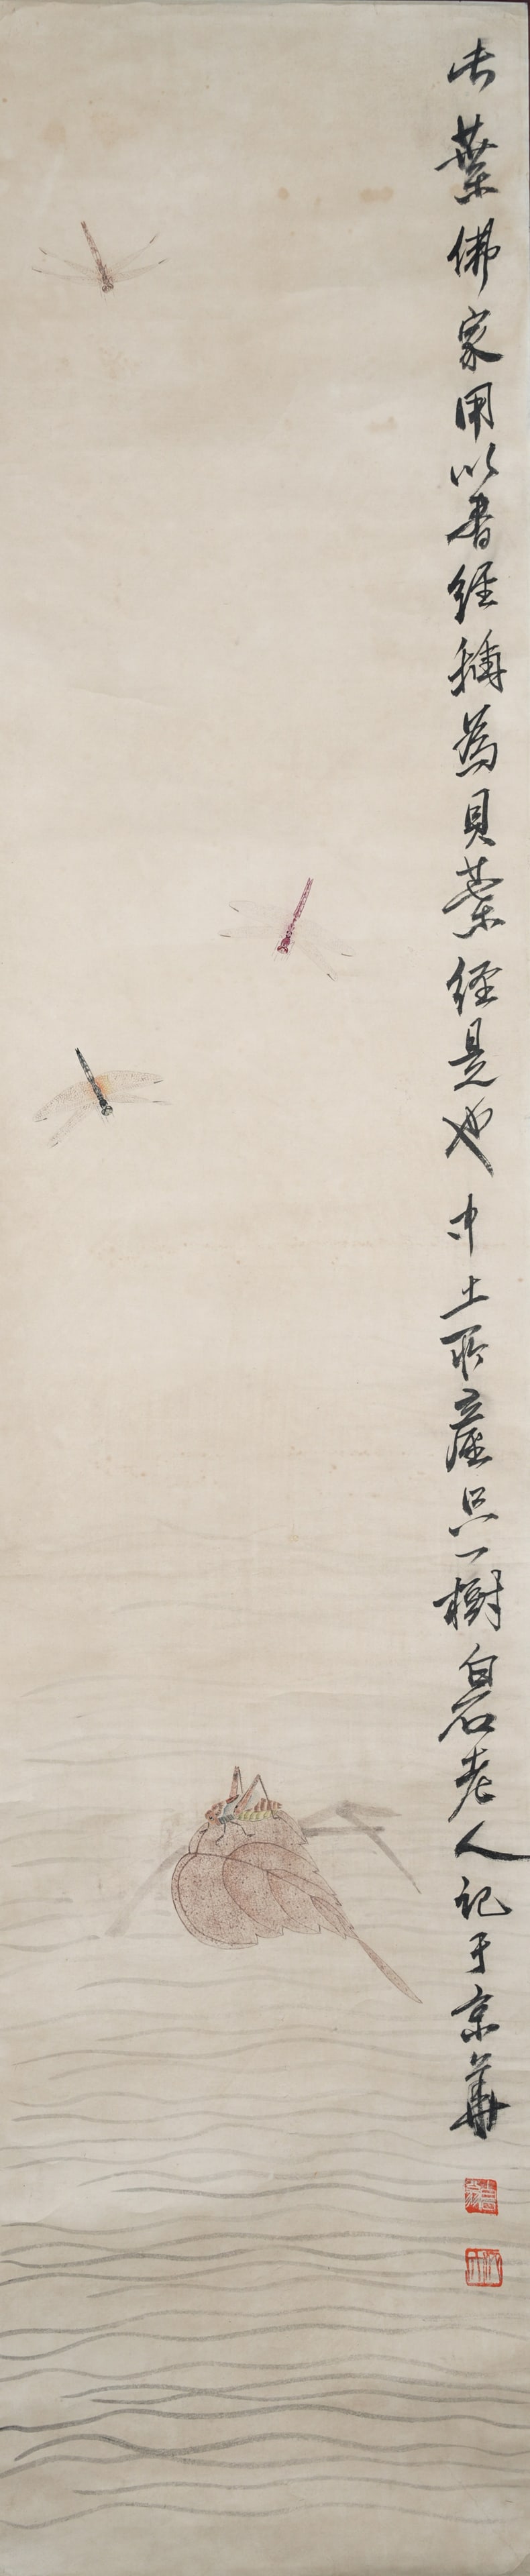 此葉佛家用以書經稱為貝葉經是也中土所產只一樹白石老人記于京華